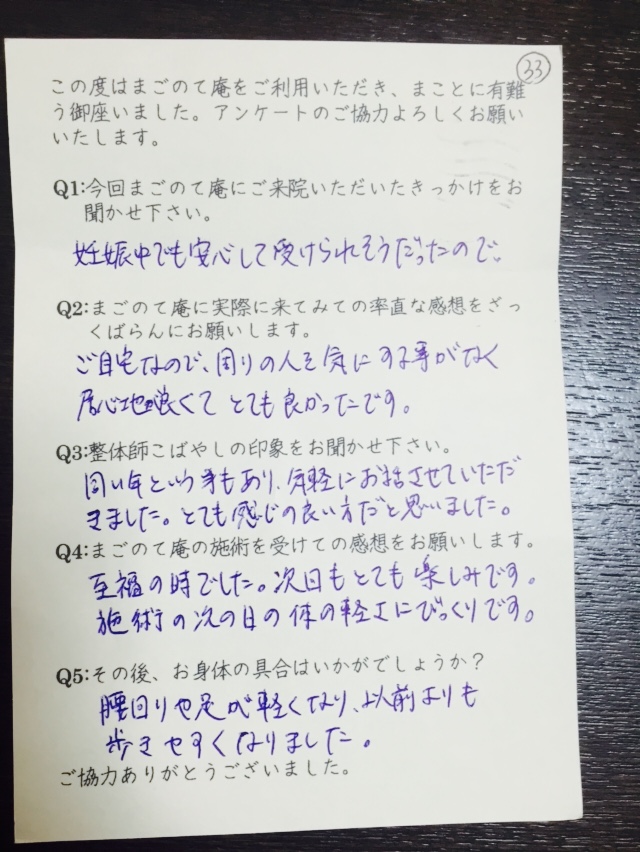 33
この度はまごのて庵をご利用いただき、まことに有難
う御座いました。アンケートのご協力よろしくお願い
いたします。
Q1:今回まごのて庵にご来院いただいたきっかけをお
聞かせ下さい。
妊娠中でも安心して受けられそうだったので。
Q2:まごのて庵に実際に来てみての率直な感想をざっ
くばらんにお願いします。
ご自宅なので、周りの人を気にする事がなく
居心地が良くて とても良かったです。
Q3:整体師こばやしの印象をお聞かせ下さい。
同い年という事もあり、気軽にお話させていただ
きました。とても感じの良い方だと思いました。
Q4:まごのて庵の施術を受けての感想をお願いします。
至福の時でした。次回もとても楽しみです。
施術の次の日の体の軽さにびっくりです。
Q5:その後、お身体の具合はいかがでしょうか？
腰回りや足が軽くなり、以前よりも
歩きやすくなりました。
ご協力ありがとうございました。